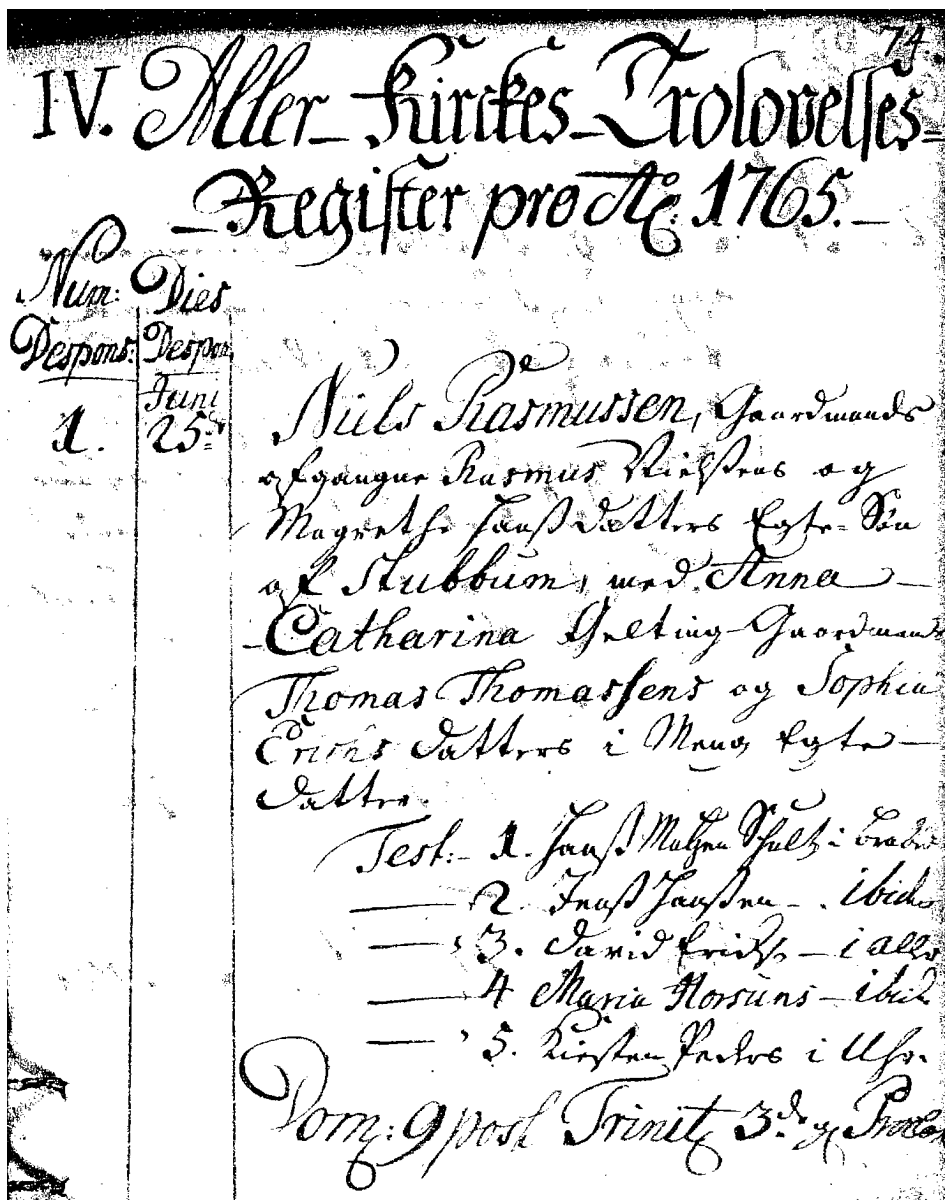 74.
IV. Aller Kirckes Trolovelses=
Register pro Ao: 1765.
Num: Dies
Despons: Despon
Juni
1. 25
Niels Rasmussen, Gaardmands
afgangne Rasmus Nielsens og
Magrethe Hansdatters Egte-Søn
af Stubbum, med Anna
Catharina Gelting Gaardmands
Thomas Thomassens og Sophia
Erichs datters i Meng Egte
datter.
Test: 1. Hanß Schultz i
2. Jenß Hanßen ibid
3. David Erichs i Aller
4 Maria ibid
5. Kirsten Peders i
Dom: 9 post Trinit 3de g